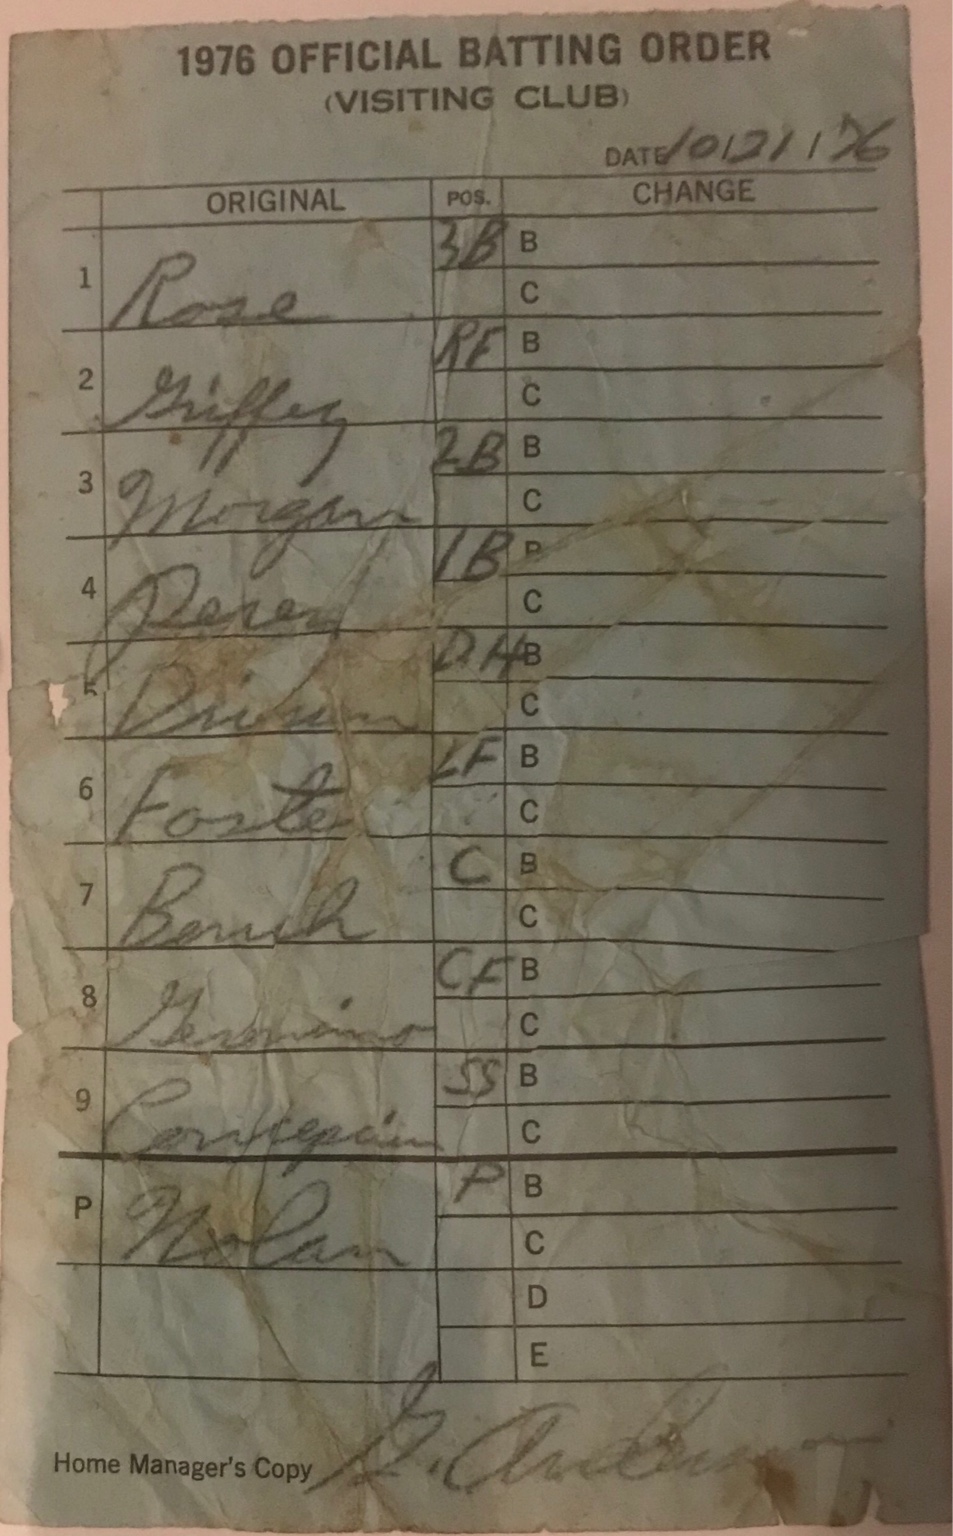 1976 OFFICIAL BATTING ORDER
(VISITING CLUB)
DATE 10/21/76
ORIGINAL POS. CHANGE
1 Rose 3B B
C
2 Griffey RF B
C
3 Morgan 2B B
C
4 Perez 1B B
C
5 Driessen DH B
C
6 Foster LF B
C
7 Bench C B
C
8 Geronimo CF B
C
9 Concepcion SS B
C
P Nolan P B
C
D
E
Home Manager's Copy G. Anderson